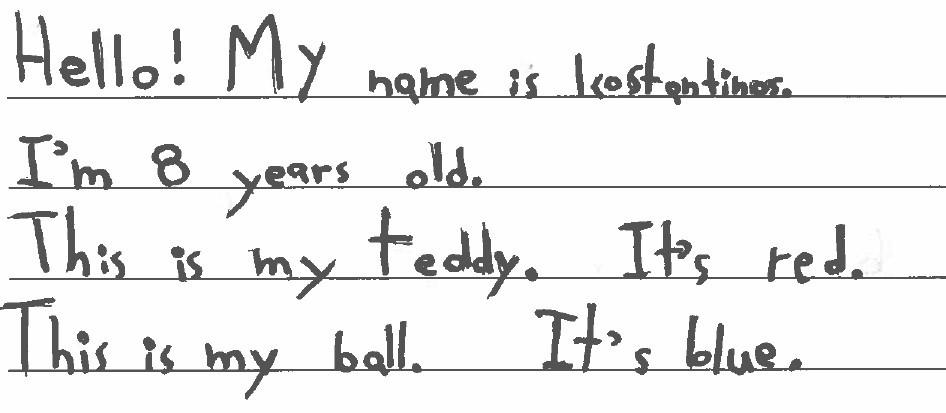 Hello! My name is Kostantinos.
I'm 8 years old.
This is my teddy. It's red.
This is my ball. It's blue.